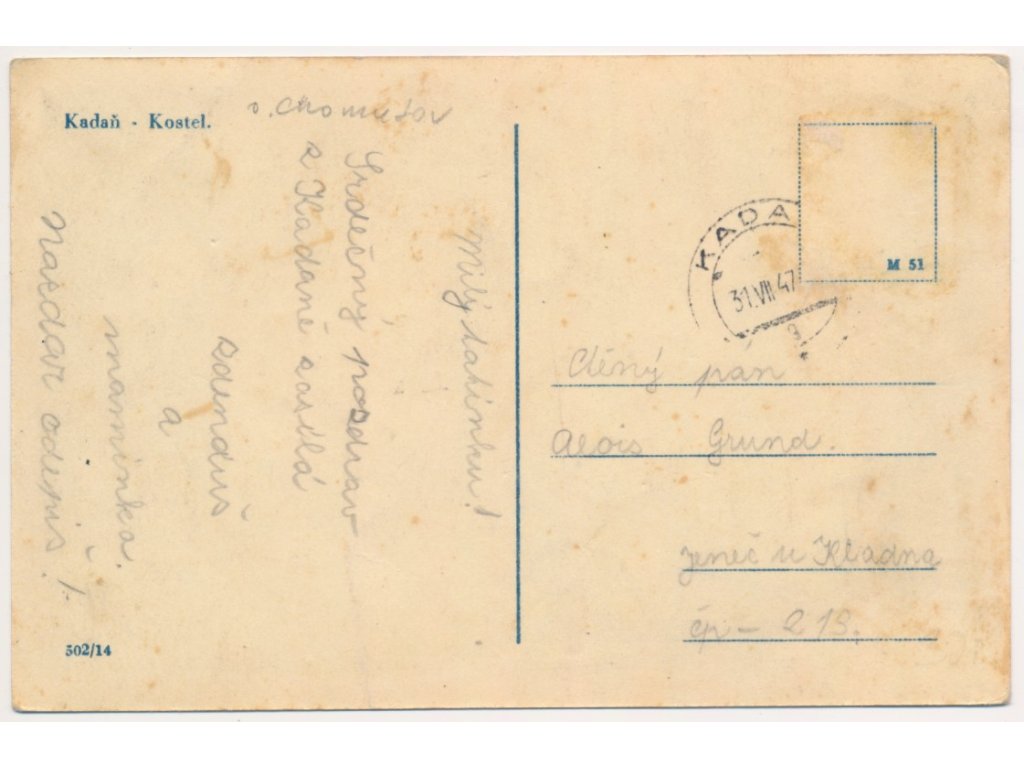 Kadaň - Kostel.
o. Chomutov
Milý tatínku!
Srdečný pozdrav
z Kadaně zasílá
Zdenduš
a
maminka.
Nazdar odepiš!
302/14
KADA
31.VII.47
M 51
Ctěný pan
Alois Grund.
Jeneč u Kladna
čp – 219.